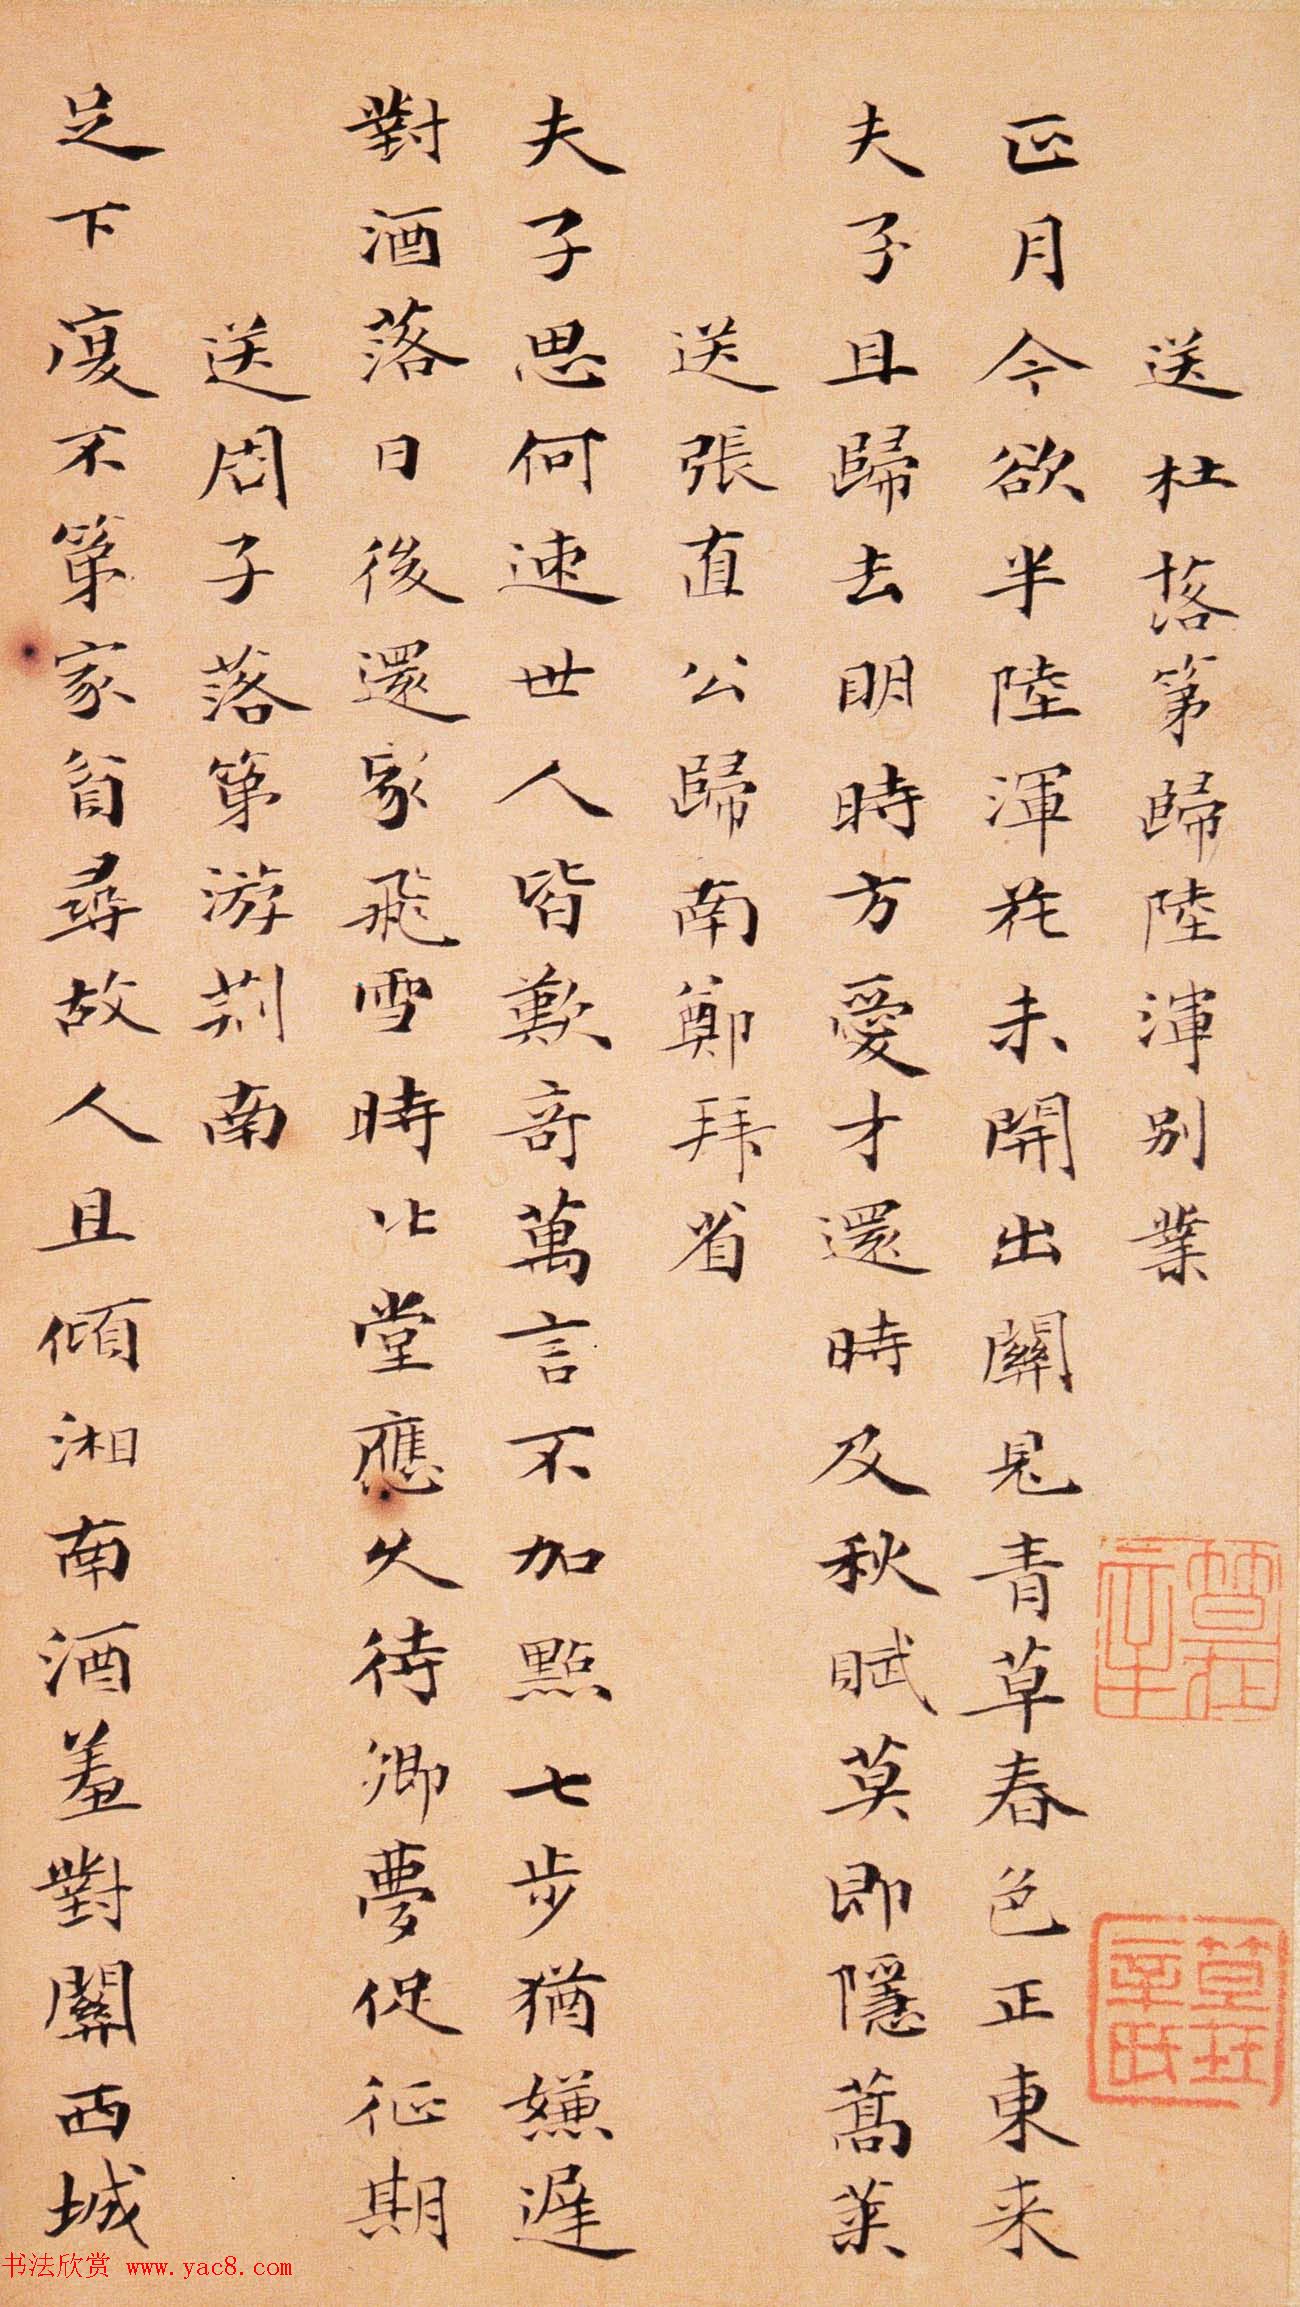 送杜落第歸陸渾別業
正月今欲半陸渾花未開出關見青草春色正東来
夫子且歸去明時方愛才還時及秋賦莫即隱蒿萊
送張直公歸南鄭拜省
夫子思何速世人皆歎奇萬言不加點七步猶嫌遲
對酒落日後還家飛雪時北堂應久待鄉夢促征期
送周子落第游荊南
足下復不第家貧尋故人且傾湘南酒羞對關西城
书法欣赏 www.yac8.com